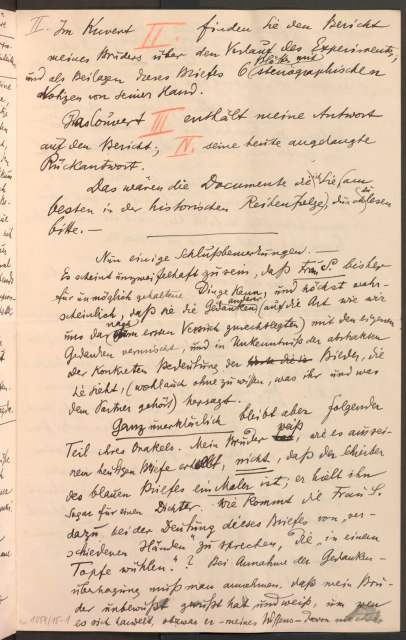 II. Im Kuvert II: finden Sie den Bericht
meines Bruders über den Verlauf des Experiments,
und als Beilagen dieses Briefes 6 Blätter mit stenographischen
Notizen von seiner Hand.
Das Couvert III enthält meine Antwort
auf den Bericht; IV. seine heute angelangte
Rückantwort.
Das wären die Documente die ich Sie (am
besten in der historischen Reihenfolge) durchzulesen
bitte. —
Nun einige Schlußbemerkungen. —
Es scheint unzweifelhaft zu sein, daß Frau S. bisher
für unmöglich gehaltene Dinge kann, und höchst wahr-
scheinlich, daß sie die Gedanken anderer (auf die Art wie wir
uns das nach dem ersten Versuch zurechtlegten) mit den eigenen
Gedanken vermischt, und in Unkenntnis der abstrakten
oder konkreten Bedeutung der Bilder, die
sie sieht, (wohl auch ohne zu wissen, was ihr und was
dem Partner gehört) hersagt.
Ganz unerklärlich bleibt aber folgender
Teil ihres Orakels. Mein Bruder weiß, wie es aus sei-
nem heutigen Briefe erhellt, nicht, daß der Schreiber
des blauen Briefes ein Maler ist; er hielt ihn
sogar für einen Dichter. Wie kommt die Frau S.
dazu, bei der Deutung dieses Briefes von „ver-
schiedenen Händen" zu sprechen, „die in einem
Topfe wühlen"? Bei Annahme der Gedanken-
übertragung muß man annehmen, daß mein Bru-
der unbewußt gewußt hat und weiß, um wen
es sich handelt, obzwar er – meines Wissens – davon
1054/15-1